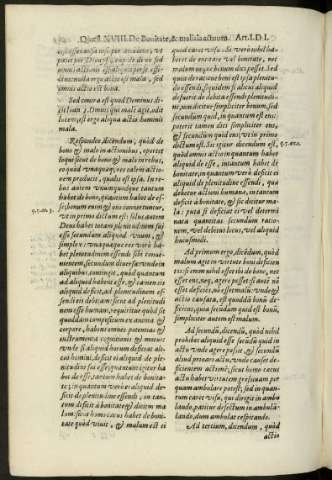 Quæst. XVIII. De Bonitate, & malitia actuum. Art. I. D. I.
mus actio est bona.
Sed contra est quod Dominus di-
mala.
Respondeo dicendum, quòd de
bono & malo in actionibus, oportet
loqui sicut de bono & malo in rebus,
eo quòd unaquæq; res talem actio-
nem producit, qualis est ipsa. In re-
bus autem unumquodque tantum
habet de bono, quantum habet de es-
se: bonum enim & ens convertuntur,
ut in primo dictum est: solus autem
Deus habet totam plenitudinem sui
esse secundum aliquid unum, &
simplex: unaquæque res verò ha-
bet plenitudinem essendi sibi conve-
nientem, secundum diversa: unde in
aliquibus contingit, quòd quantum
ad aliquid habent esse, & tamen eis
aliquid deficit, ad plenitudinem es-
sendi eis debitam: sicut ad plenitudi-
nem esse humani, requiritur quòd sit
quoddam compositum ex anima &
corpore, habens omnes potentias &
instrumenta cognitionis & motus:
unde si aliquid horum deficiat ali-
cui homini, deficit ei aliquid de ple-
nitudine sui esse: quantum igitur ha-
bet de esse, tantum habet de bonita-
te: in quantum verò ei aliquid de-
ficit de plenitudine essendi, in tan-
tum deficit à bonitate & dicitur ma-
lum: sicut homo cæcus habet de boni-
tate quòd vivit, & malum est ei
quod caret visu. Si verò nihil ha-
beret de entitate vel bonitate, nec
malum neque bonum dici posset. Sed
quia de ratione boni est ipsa plenitu-
do essendi, si quidem si alicui aliquid
defuerit de debita essendi plenitudi-
ne, non dicetur simpliciter bonum, sed
secundum quid, in quantum est ens:
poterit tamen dici simpliciter ens,
& secundum quid ens, ut in primo
dictum est. Sic igitur dicendum est,
quòd omnis actio in quantum habet
aliquid de esse, in tantum habet de
bonitate, in quantum verò deficit ei
aliquid de plenitudine essendi, quæ
debetur actioni humanæ, in tantum
deficit à bonitate, & sic dicitur ma-
la: puta si deficiat ei vel determi-
nata quantitas secundum ratio-
nem, vel debitus locus, vel aliquid
huiusmodi.
Ad primum ergo, dicendum, quòd
malum agit in virtute boni deficien-
tis: si enim nihil esset ibi de bono, nec
esset ens, neq; agere posset: si autem nō
esset deficiens, non esset malum: unde &
actio causata, est quoddā bonū de-
ficiens, quia secundum quid est bonū,
simpliciter autem est malum.
Ad secundū, dicendū, quòd nihil
prohibet aliquid esse secūdū quid in
actu unde agere posset, & secundū
aliud privari actu, unde causet de-
ficientem actionē: sicut homo cæcus
actu habet virtutem gressivam per
quam ambulare potest, sed in quan-
tum caret visu, qui dirigit in ambu-
lando, patitur defectum in ambula-
lando, dum ambulat cespitando.
Ad tertium, dicendum, quòd
actio